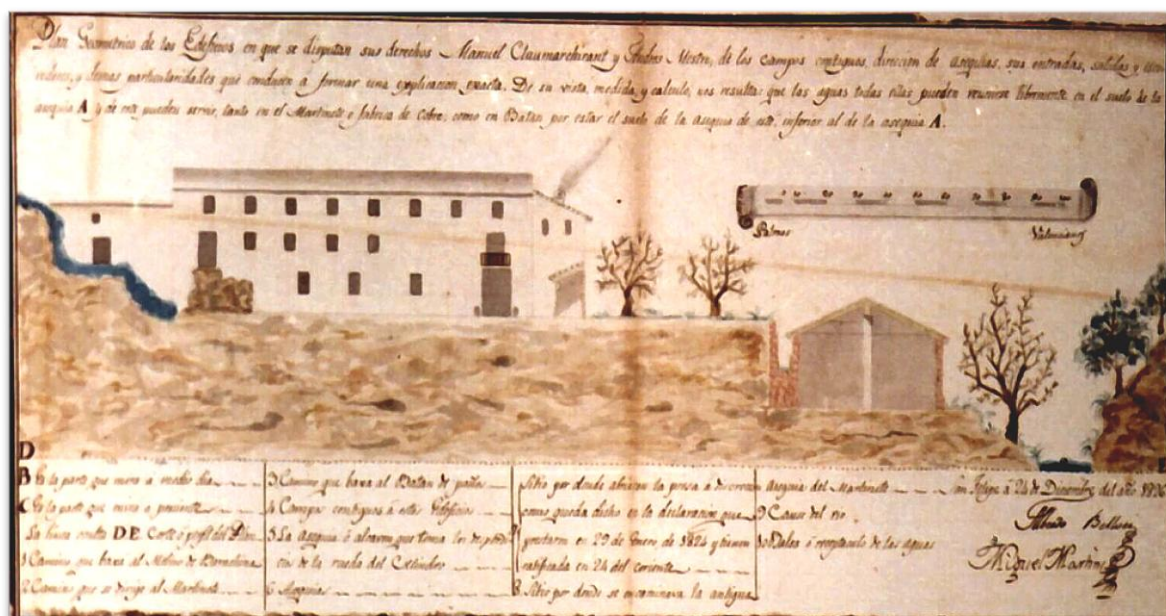 Plan Geometrico de los Edeficios en que se disputan sus derechos Manuel Claumarchirant y Mestre, de los campos contiguos, direccion de asequias, sus entradas, salidas y
y demas particularidades que conducen a formar una esplicacion exacta. De su vista, medida, y calculo, nos resulta que las aguas todas ellas pueden reunirse libremente en el suelo de la
asequia A y de esta pueden servir, tanto en el Martinete o fabrica de Cobre, como en Batan por estar el suelo de la asequia de este, inferior al de la asequia A.
Palmos
Valencianos
D
B Es la parte que mira a medio dia
C Es la parte que mira a poniente
La linea oculta DE Corte o perfil del Plan
1 Camino que baxa al Molino de
2 Camino que se dirige al Martinete
3 Camino que baxa al Batan de paños
4 Campos contiguos a este Edeficio
5 La asequia o alcavon que toma los de
de la rueda del Cilindro
6 Asequia
Sitio por donde abrieron la presa a
como queda dicho en la declaracion que
prestaron en 29 de Enero de 1824 y tienen
ratificada en 24 del coriente
8 Sitio por donde se encaminava la antigua
asequia del Martinete
9 Cause del rio
o reseptaculo de las aguas
San Felipe a 24 de Disiembre del año
Miguel Martinez